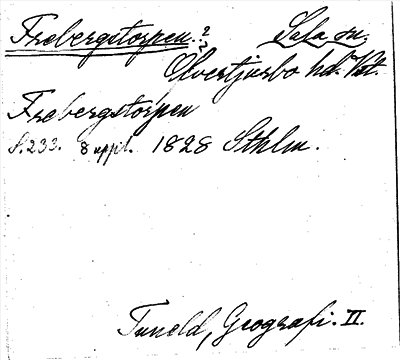 Frebergstorpen.? Sala sn.
Övertjurbo hd. Vstm.
Frebergstorpen
S. 233. 8 uppl. 1828 Sthlm.
Tuneld, Geografi. II.